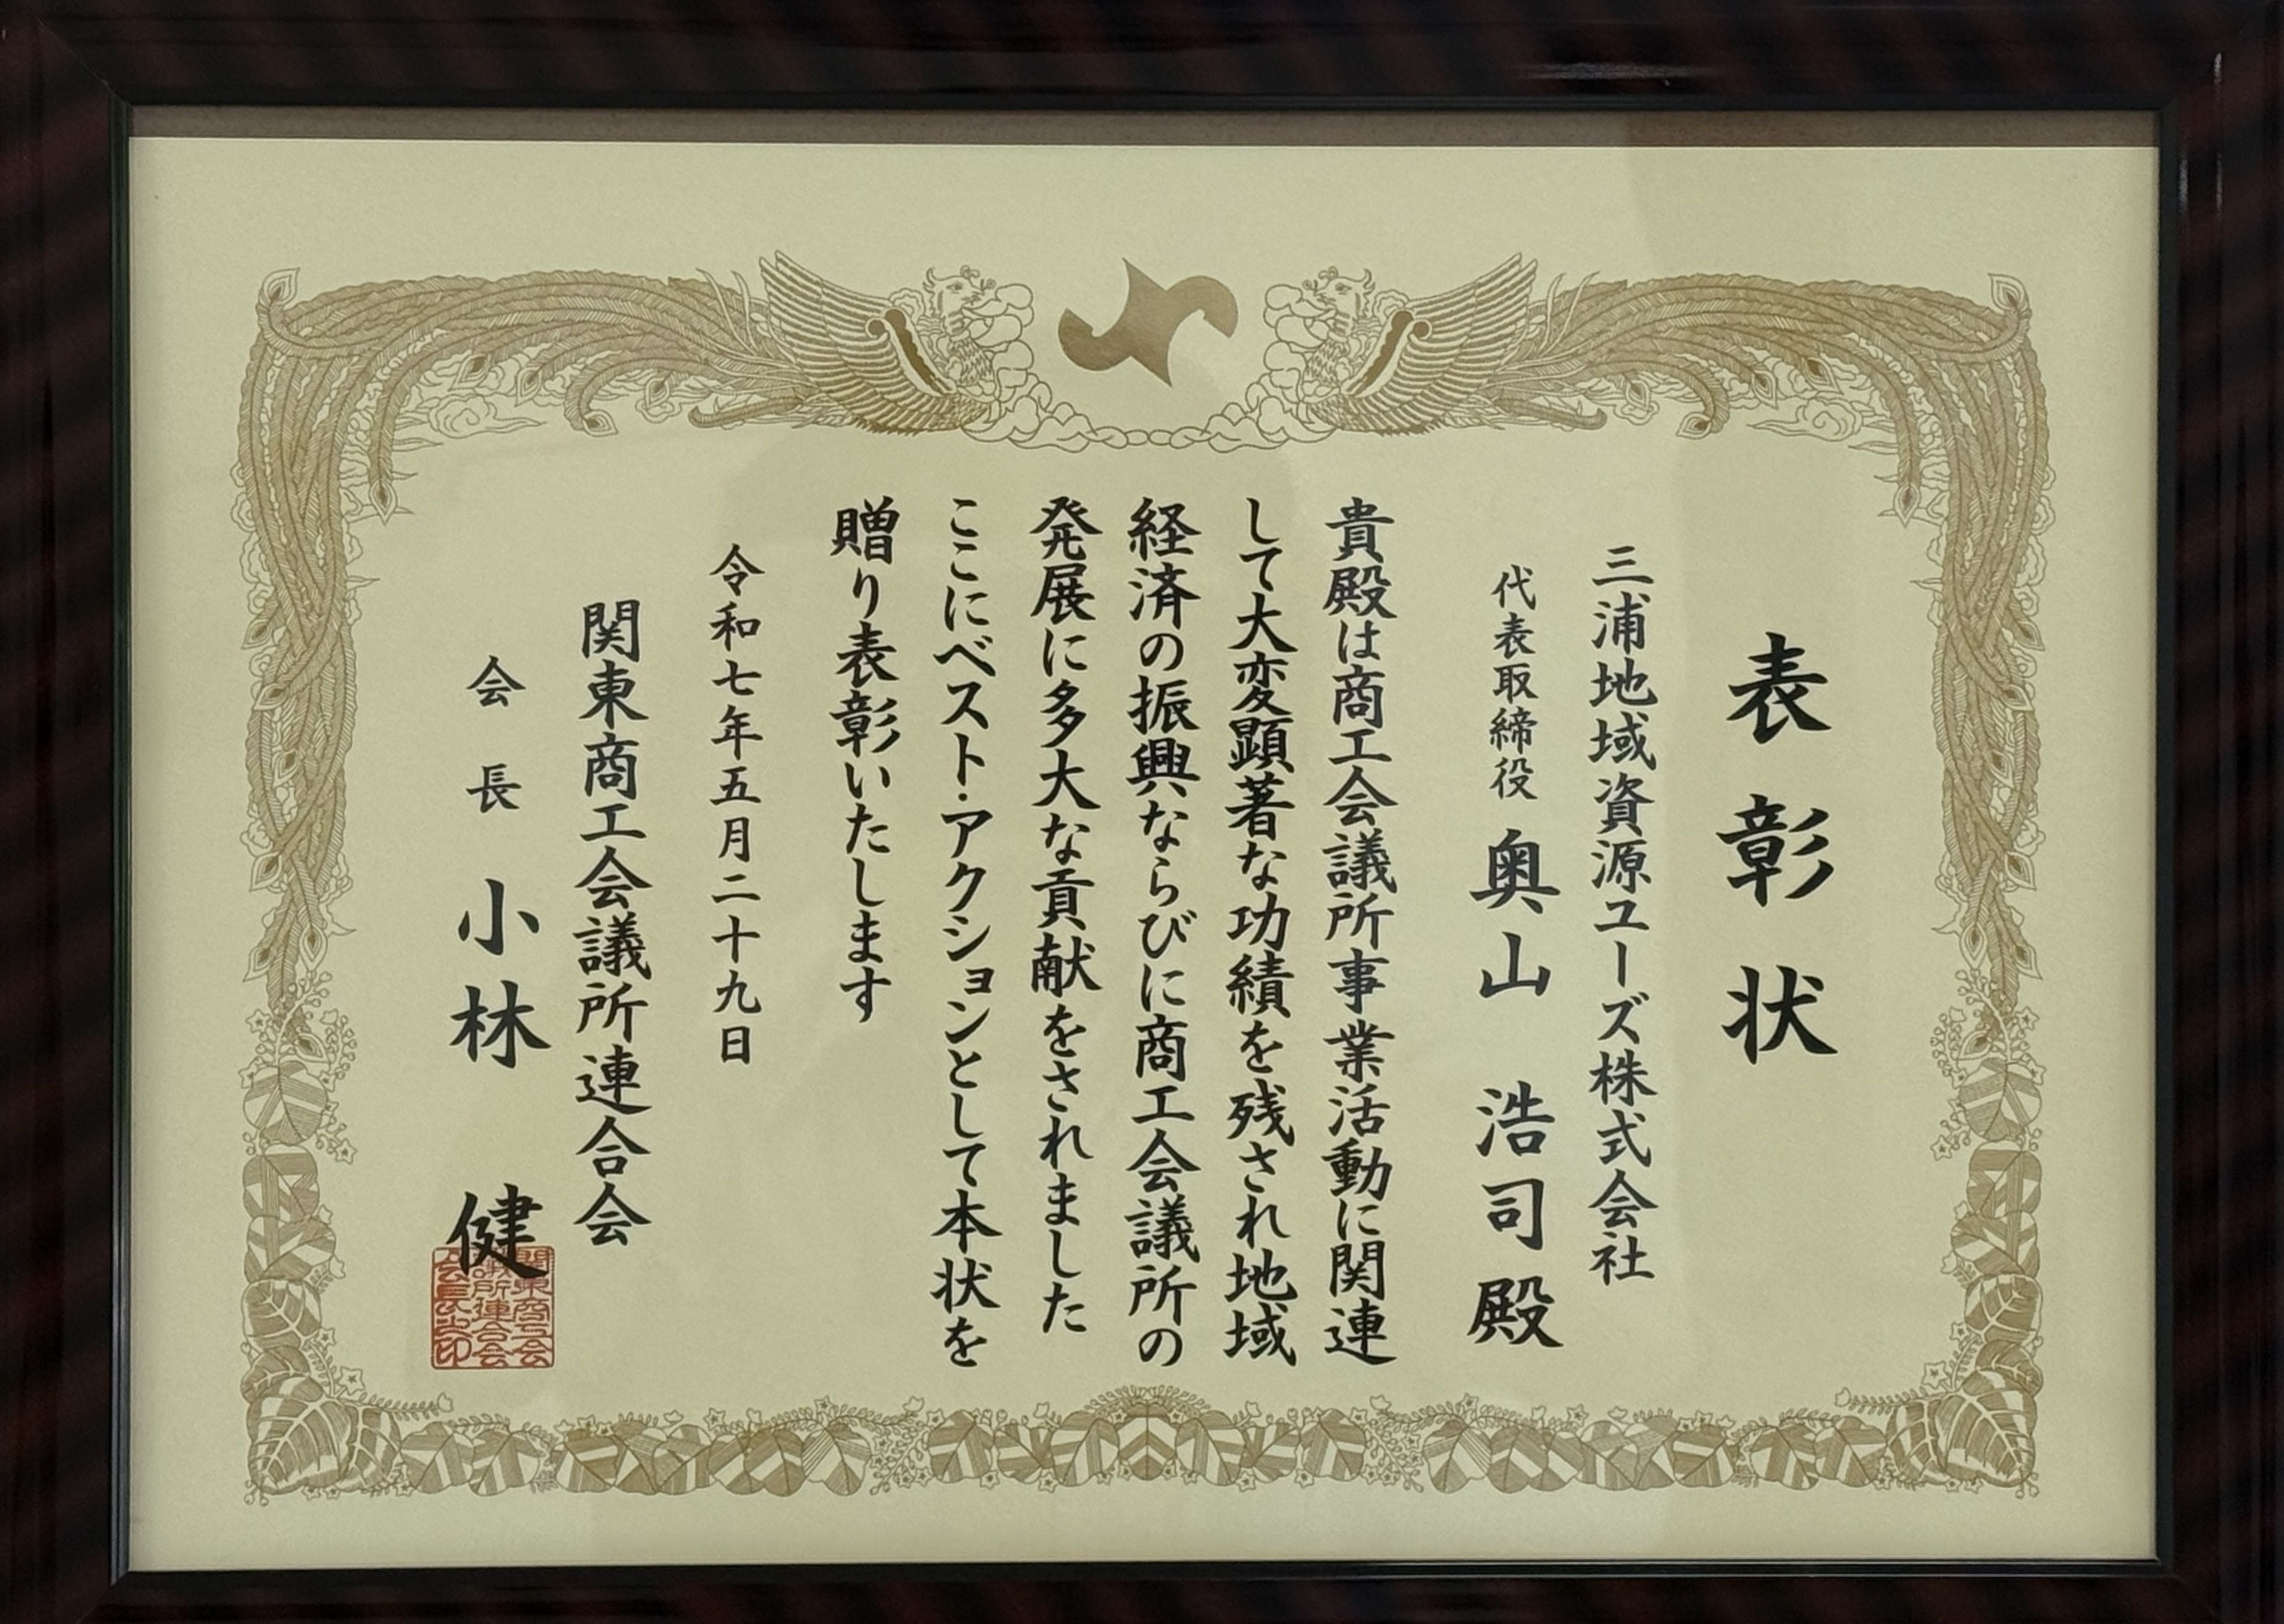 表彰状
三浦地域資源ユーズ株式会社
代表取締役 奥山 浩司 殿
貴殿は商工会議所事業活動に関連
して大変顕著な功績を残され地域
経済の振興ならびに商工会議所の
発展に多大な貢献をされました
ここにベスト・アクションとして本状を
贈り表彰いたします
令和七年五月二十九日
関東商工会議所連合会
会長 小林 健
関東商工会
議所連合会
会長之印